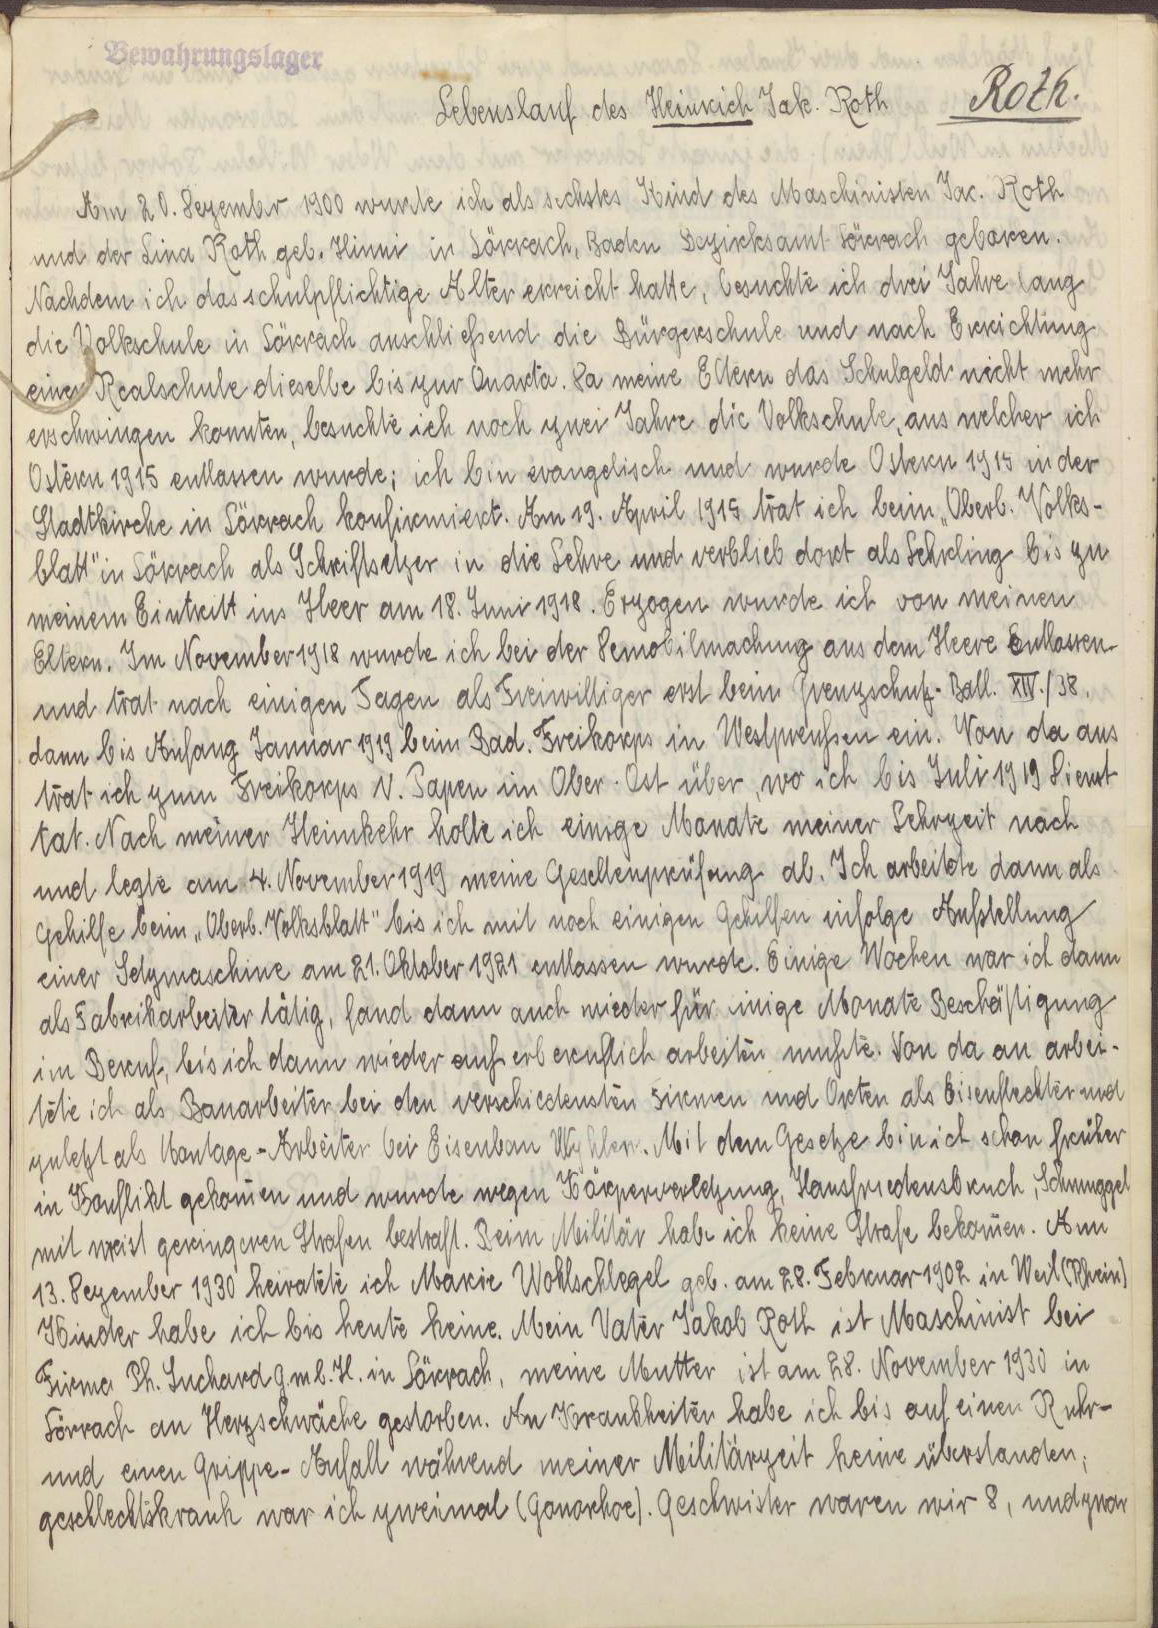 Bewahrungslager
Lebenslauf des Heinrich Jak. Roth
Roth.
Am 20. Dezember 1900 wurde ich als sechstes Kind des Maschinisten Jak. Roth
und der Lina Roth geb. Hinni in Lörrach, Baden Bezirksamt Lörrach geboren.
Nachdem ich das schulpflichtige Alter erreicht hatte, besuchte ich drei Jahre lang
die Volkschule in Lörrach anschließend die Bürgerschule und nach Errichtung
einer Realschule dieselbe bis zur Quarta. Da meine Eltern das Schulgeld nicht mehr
erschwingen konnten, besuchte ich noch zwei Jahre die Volkschule, aus welcher ich
Ostern 1915 entlassen wurde; ich bin evangelisch und wurde Ostern 1915 in der
Stadtkirche in Lörrach konfirmiert. Am 19. April 1915 trat ich beim „Oberb. Volks-
blatt" in Lörrach als Schriftsetzer in die Lehre und verblieb dort als Lehrling bis zu
meinem Eintritt ins Heer am 18. Juni 1918. Erzogen wurde ich von meinen
Eltern. Im November 1918 wurde ich bei der Demobilmachung aus dem Heere Entlassen
und trat nach einigen Tagen als Freiwilliger erst beim Grenzschutz-Batl. XIV./38.
dann bis Anfang Januar 1919 beim Bad. Freikorps in Westpreußen ein. Von da aus
trat ich zum Freikorps v. Papen im Ober-Ost über, wo ich bis Juli 1919 Dienst
tat. Nach meiner Heimkehr holte ich einige Monate meiner Lehrzeit nach
und legte am 4. November 1919 meine Gesellenprüfung ab. Ich arbeitete dann als
Gehilfe beim „Oberb. Volksblatt" bis ich mit noch einigen Gehilfen infolge Aufstellung
einer Setzmaschine am 21. Oktober 1921 entlassen wurde. Einige Wochen war ich dann
als Fabrikarbeiter tätig, fand dann auch wieder für einige Monate Beschäftigung
im Beruf, bis ich dann wieder außerberuflich arbeiten mußte. Von da an arbei-
tete ich als Bauarbeiter bei den verschiedensten Firmen und Orten als Eisenflechter und
zuletzt als Montage-Arbeiter bei Eisenbau Wyhlen. Mit dem Gesetze bin ich schon früher
in Konflikt gekom̅en und wurde wegen Körperverletzung, Hausfriedensbruch, Schmuggel
mit meist geringeren Strafen bestraft. Beim Militär habe ich keine Strafe bekom̅en. Am
13. Dezember 1930 heiratete ich Marie Wohlschlegel geb. am 28. Februar 1902 in Weil (Rhein)
Kinder habe ich bis heute keine. Mein Vater Jakob Roth ist Maschinist bei
Firma Ph. Suchard G.m.b.H. in Lörrach, meine Mutter ist am 28. November 1930 in
Lörrach an Herzschwäche gestorben. An Krankheiten habe ich bis auf einen Ruhr-
und einen Grippe-Anfall während meiner Militärzeit keine überstanden;
geschlechtskrank war ich zweimal (Gonorhoe). Geschwister waren wir 8, und zwar